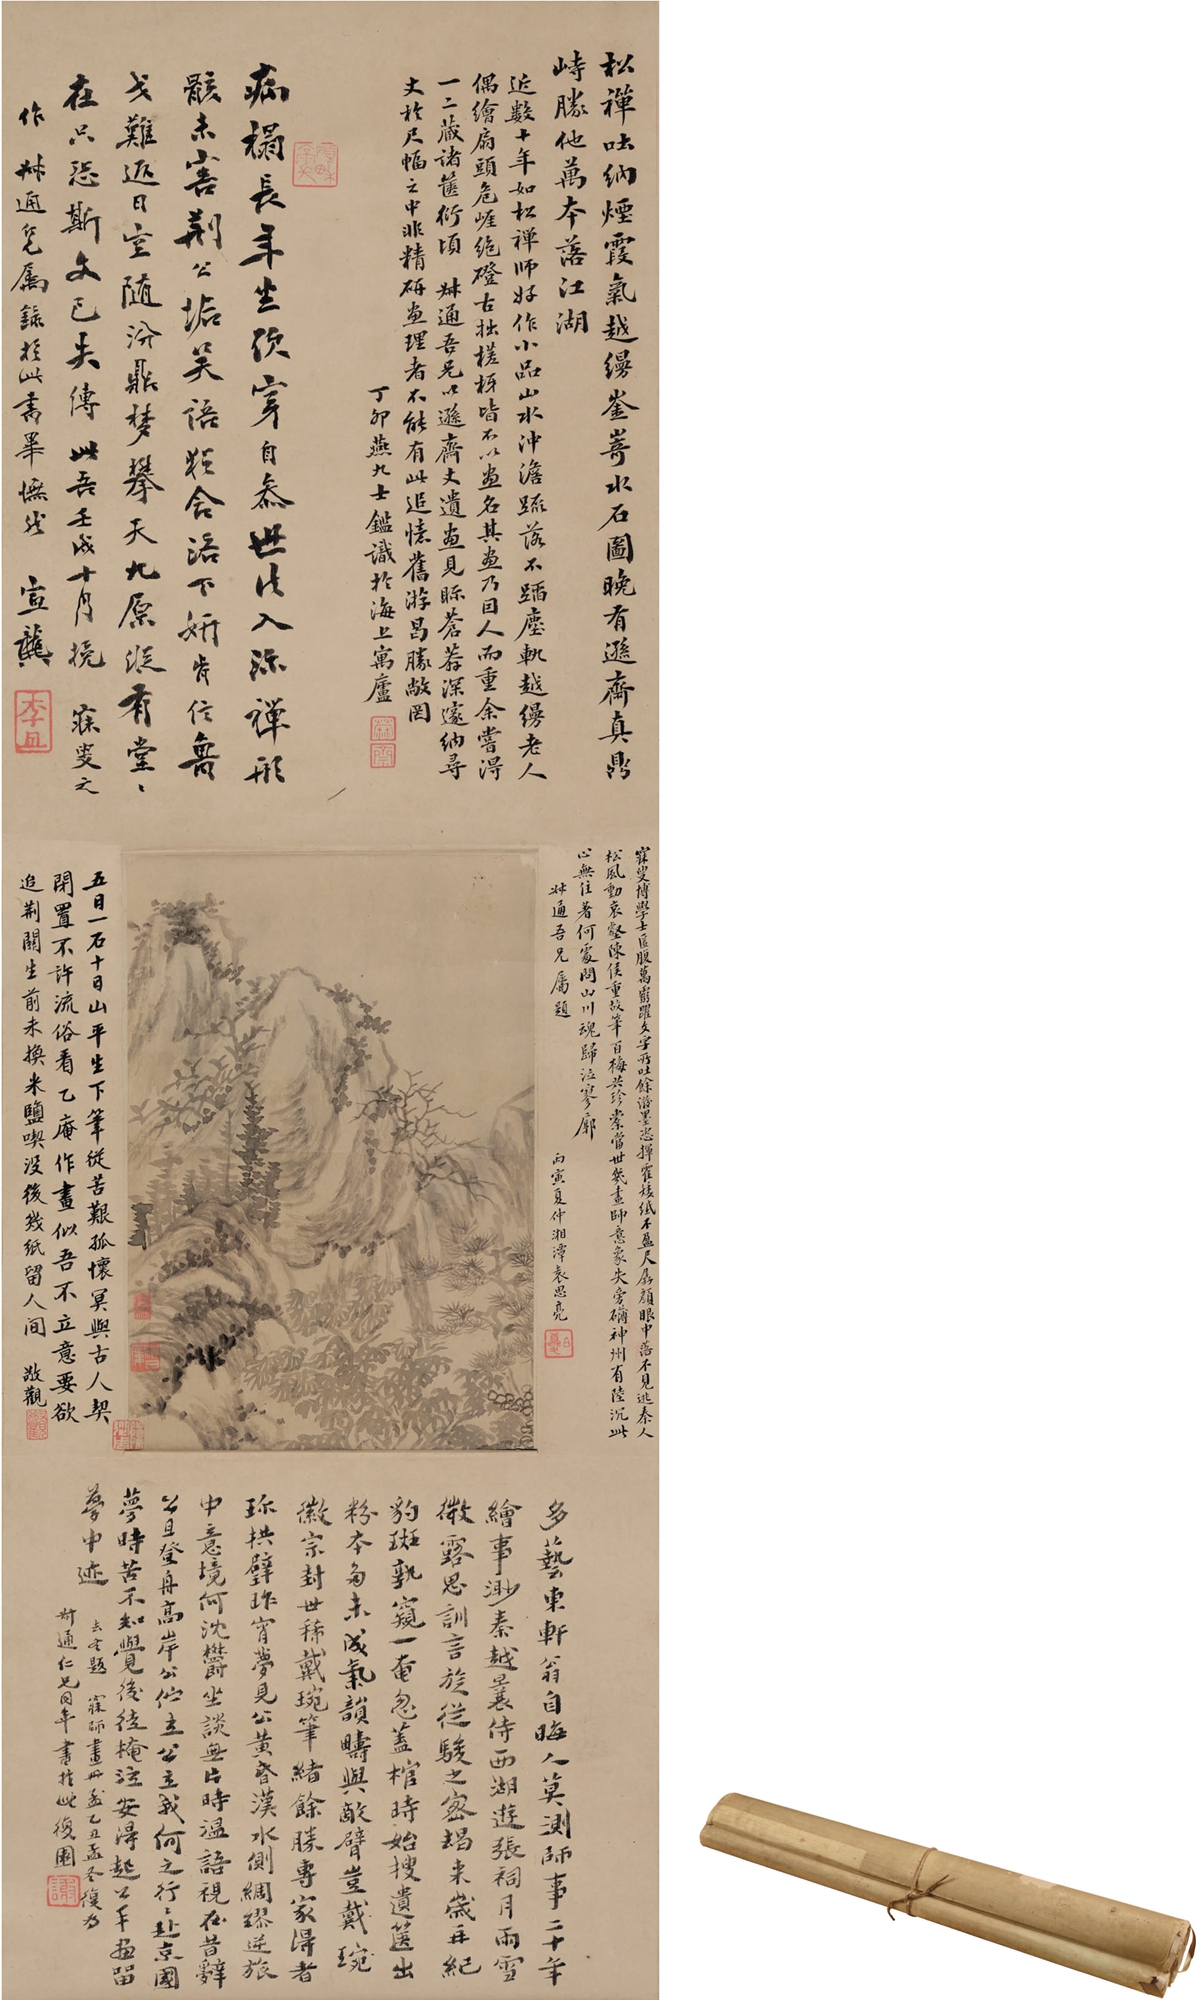 松禪吐納煙霞氣越縵崟嵜水石圖晚有遜齋真鼎
峙勝他萬本落江湖
近數十年如松禪師好作小品山水沖澹疏落不蹈塵軌越縵老人
偶繪扇頭危崕絶磴古拙槎枒皆不以畫名其畫乃因人而重余嘗得
一二藏諸篋衍頃 尗通吾兄以遜齋丈遺畫見眎蒼莽深邃納尋
丈於尺幅之中非精研畫理者不能有此追憶舊游曷勝敞罔
丁卯燕九士鑑識於海上寓廬
病榻長年坐欲穿自叅世法入涂禪形
骸未害荆公垢吴語猶含洛下妍肯信魯
戈難返日空隨汾鼎夢攀天九原縱有堂〻
在只恐斯文已失傳此吾壬戌十月挽 寐叟之
作 尗通兄属錄於此書畢憮然 宣龔
李旦
寐叟博學士匡腹萬卷躍文字所吐餘游墨恣揮霍矮紙不盈尺孱顏眼中落不見逃秦人
松風動哀壑陳侯重故筆百梅共珍橐當世幾畫師意象失旁礴神州有陸沉此
心無住著何處問山川魂歸泣寥廓
尗通吾兄屬題
丙寅夏仲湘潭袁思亮
五日一石十日山平生下筆從苦艱孤懷冥與古人契
閉置不許流俗看乙庵作畫似吾不立意要欲
追荆關生前未換米鹽喫没後幾紙留人间 敬觀
多藝東軒翁自晦人莫測師事二十年
繪事渺秦越曩侍西湖遊張祠月雨雪
微露思訓言旋從駿之窓朅来歲再紀
豹斑孰窺一奄忽蓋棺時始搜遺篋出
粉本多未成氣韻疇與敵臂豈戴琬
徽宗封世稀戴琬筆緒餘勝專家得者
珎拱璧昨宵夢見公黄昏漢水側綢繆逆旅
中意境何沈欝坐談無片時温語視在昔辤
公且登舟高岸公佇立公立我何之行〻赴京國
夢時苦不知覺後徒掩泣安得起公手畫留
夢中迹 去冬題 寐師畫册 乙丑孟冬復为
尗通仁兄同年書於此復園